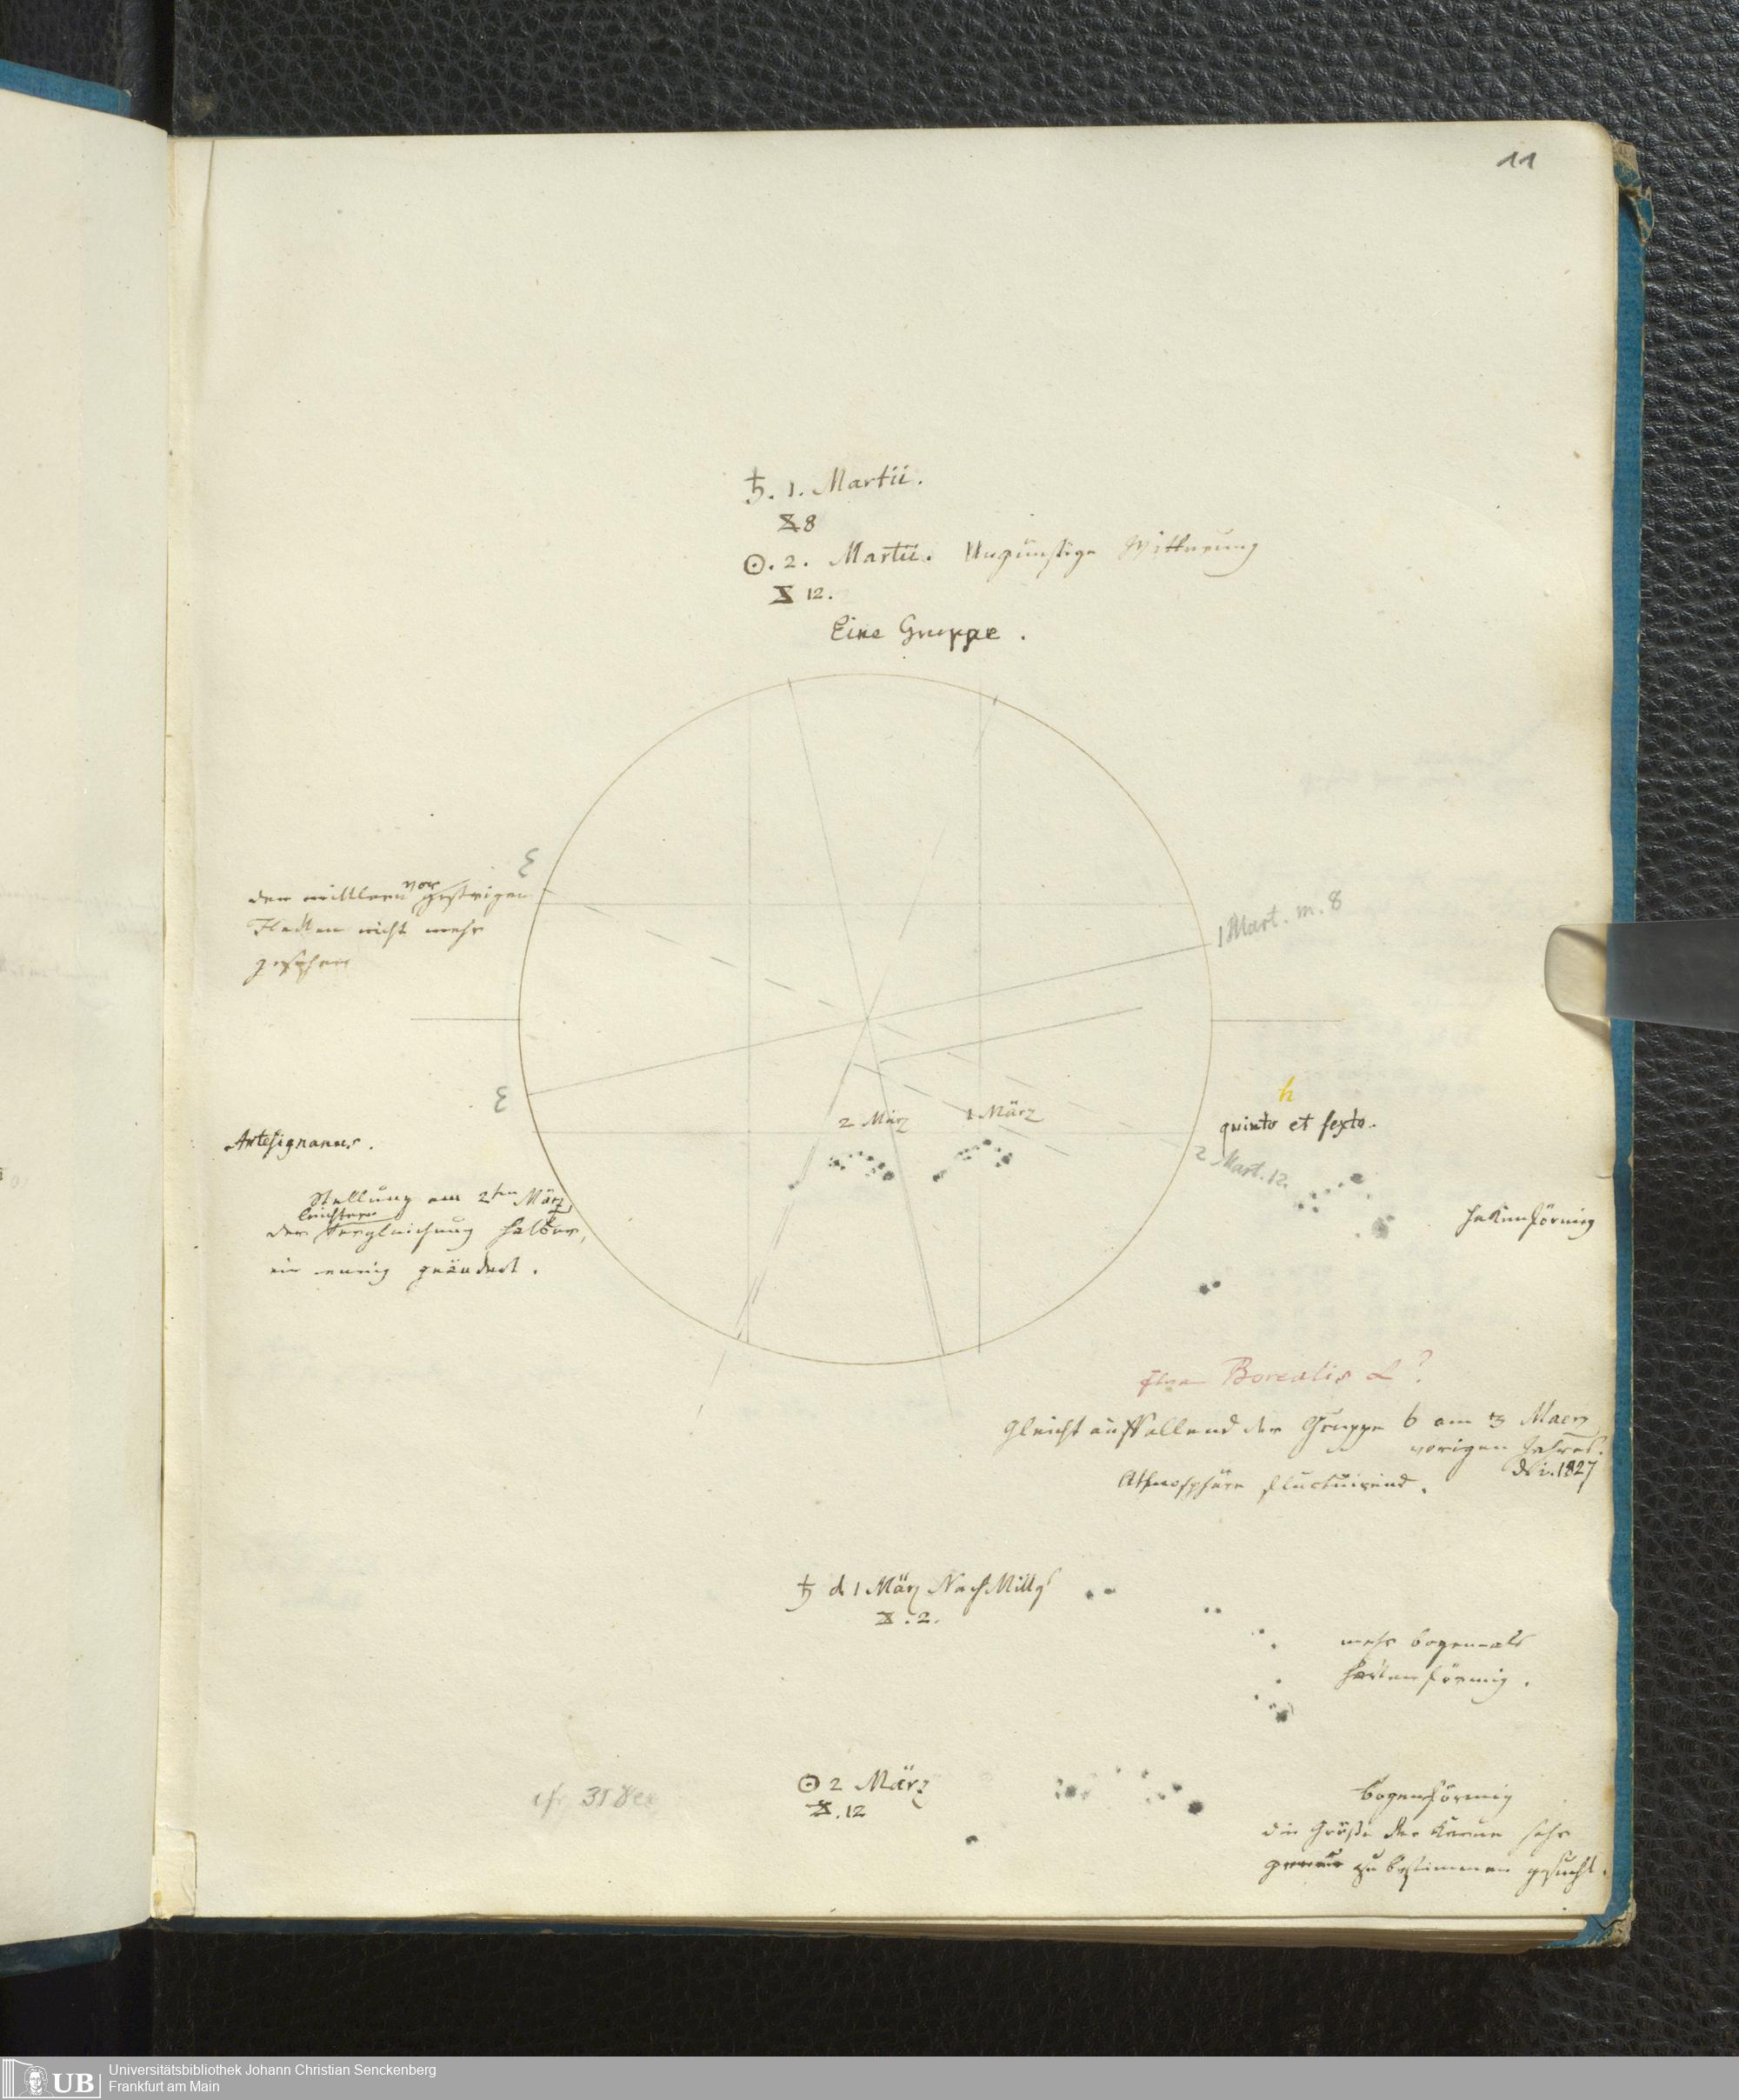 11
♄. 1. Martii.
⧖ 8
☉. 2. Martii. Ungünstige Witterung
⧖ 12.
Eine Gruppe.
ε
den mittlern vorgestrigen
Flecken nicht mehr
gesehen
1 Mart. m. 8
ε
h
2 März
1 März
quinto et sexto.
Antesignanus.
2 Mart. 12.
Stellung am 2ten März
leichtern
der Vergleichung halber,
ein wenig geändert.
hakenförmig
Borealis α?
Gleicht auffallend der Gruppe 6 am 3 Maerz
vorigen Jahres.
d. i. 1827
Athmosphäre fluctuirend.
♄ d 1 März NachMittgs
⧖. 2.
mehr bogen als
hakenförmig.
☉ 2 März
⧖. 12
cf. 31 Dec
bogenförmig
die Größe der Kerne sehr
genau zu bestimmen gesucht.
Universitätsbibliothek Johann Christian Senckenberg
UB
Frankfurt am Main